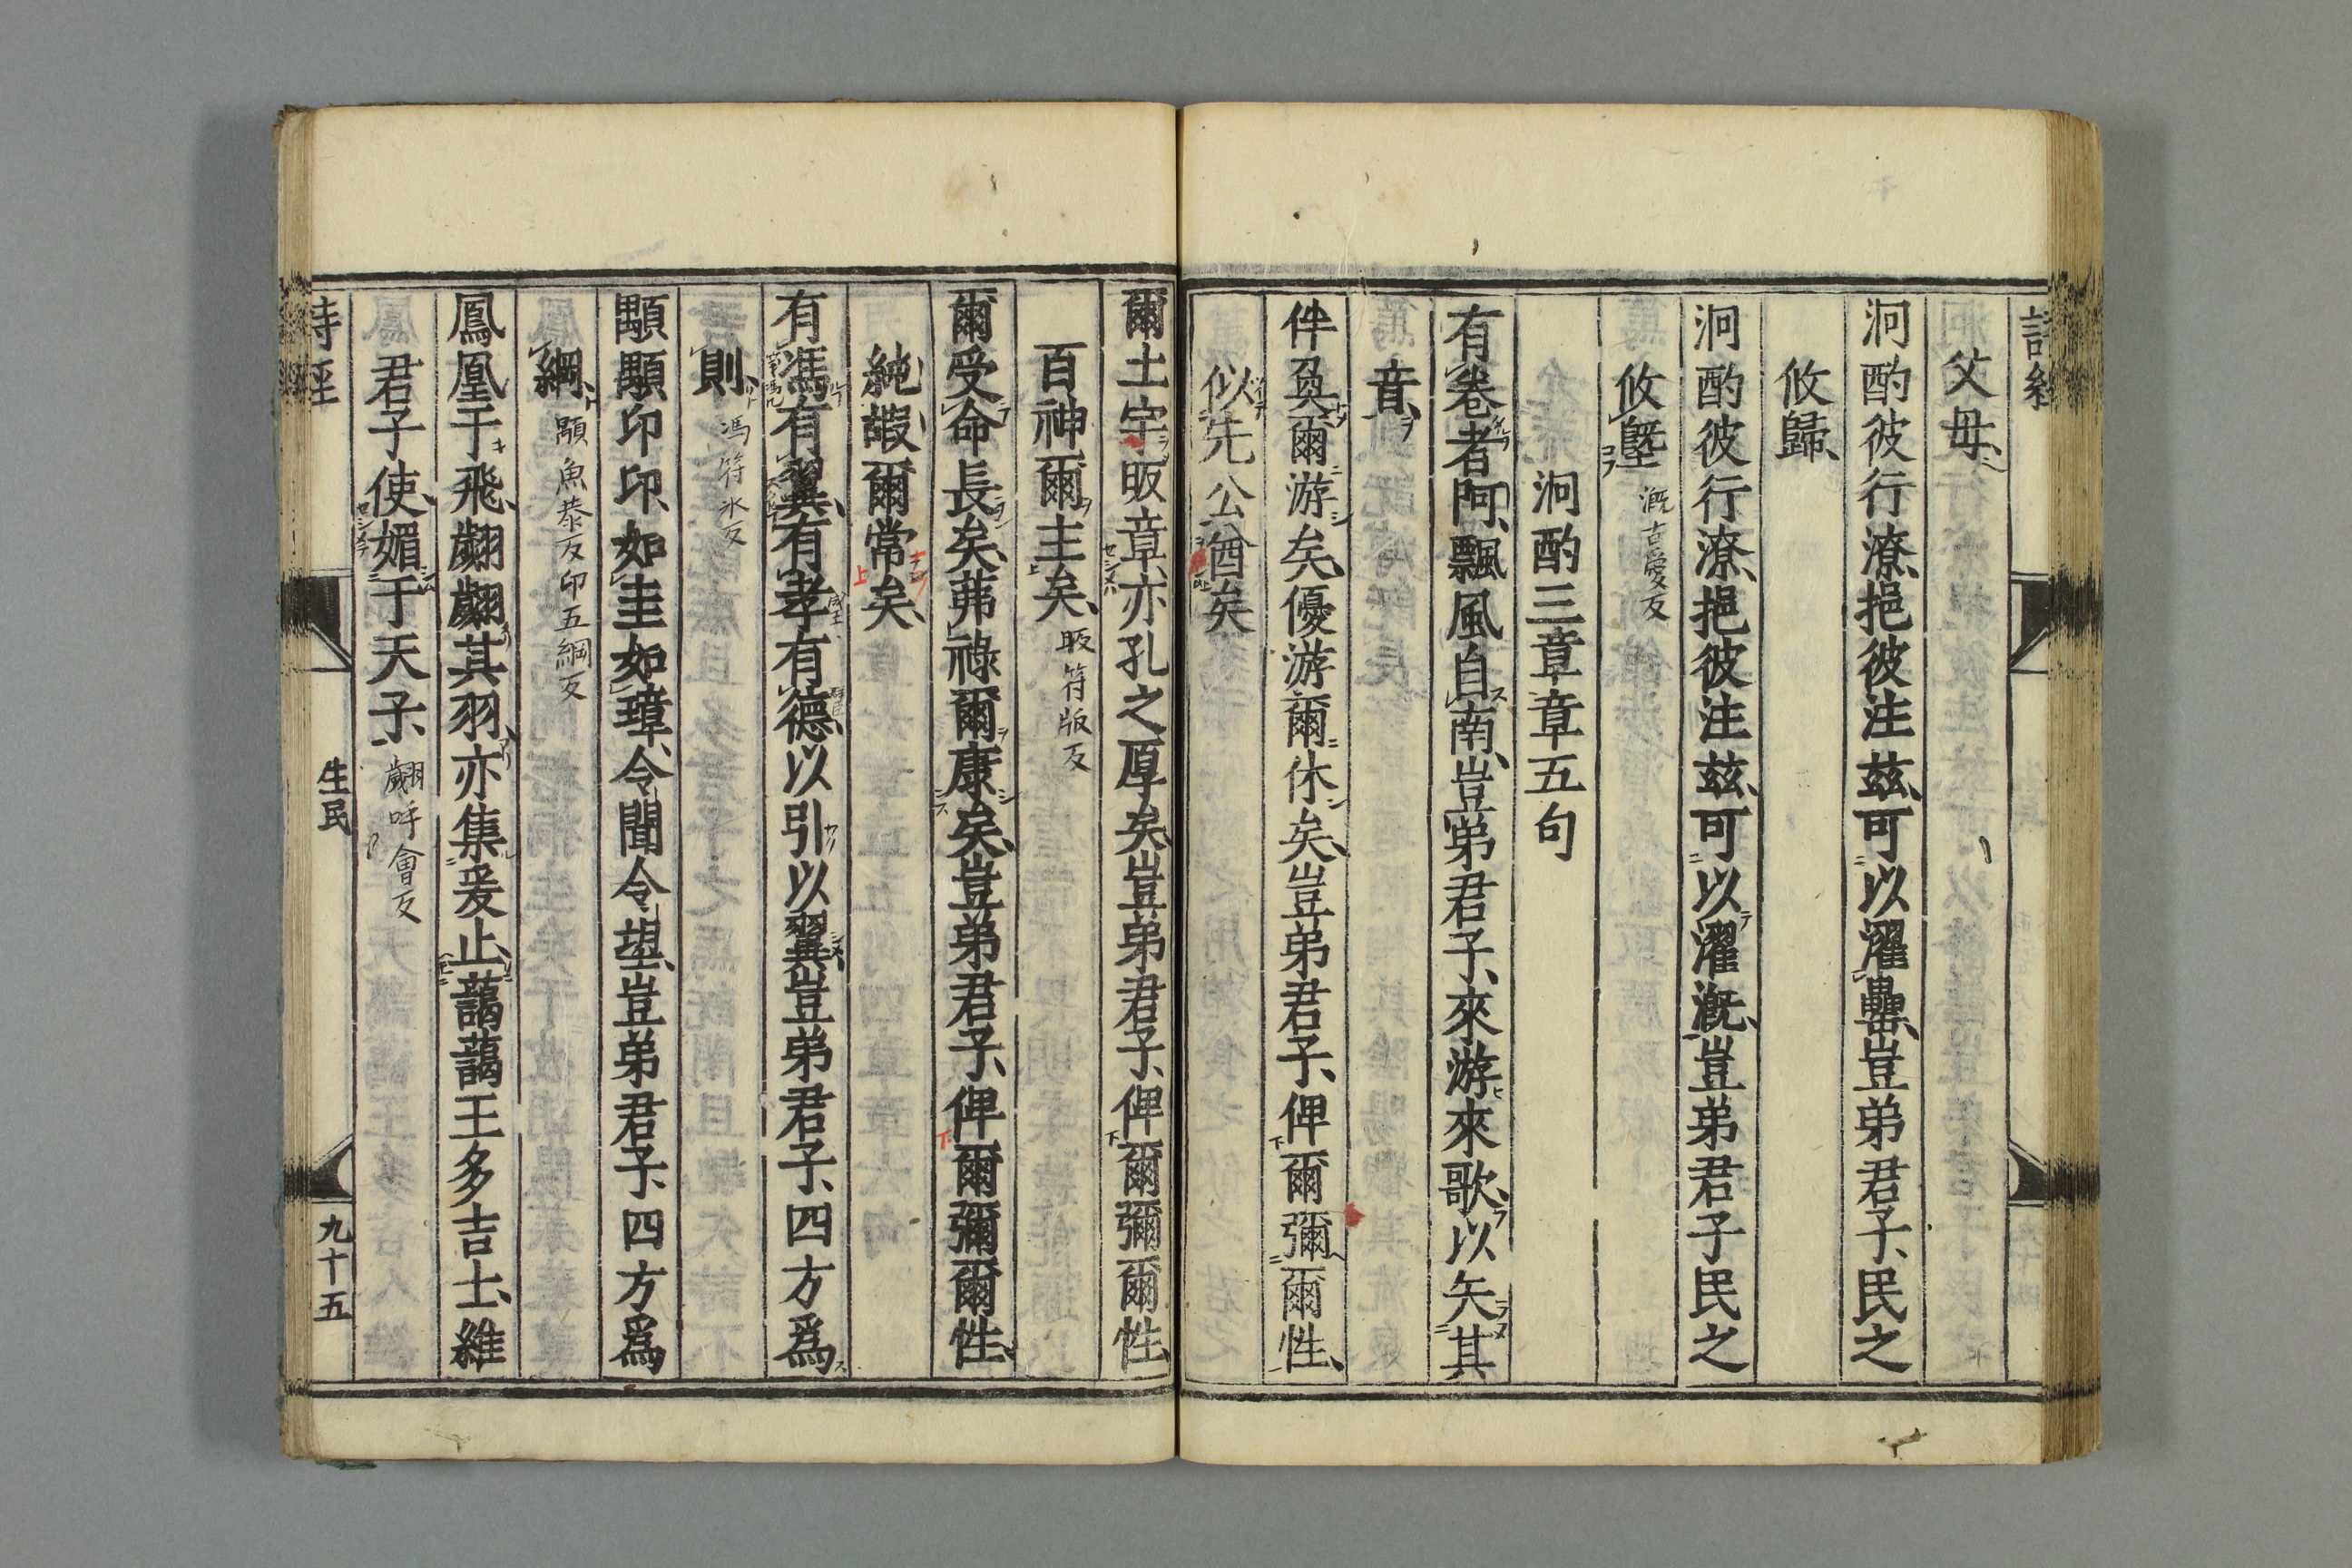 父母
泂酌彼行潦挹彼注茲可以濯罍豈弟君子民之
攸歸
泂酌彼行潦挹彼注茲可以濯漑豈弟君子民之
攸塈 漑古愛反
泂酌三章章五句
有卷者阿飄風自南豈弟君子來游來歌以矢其
音
伴奐爾游矣優游爾休矣豈弟君子俾爾彌爾性
似先公酋矣
爾土宇昄章亦孔之厚矣豈弟君子俾爾彌爾性
百神爾主矣 昄符版反
爾受命長矣茀祿爾康矣豈弟君子俾爾彌爾性
純嘏爾常矣
有馮有翼有孝有德以引以翼豈弟君子四方爲
則 馮符氷反
顒顒卬卬如圭如璋令聞令望豈弟君子四方爲
綱 顒魚恭反卬五綱反
鳳凰于飛翽翽其羽亦集爰止藹藹王多吉士維
君子使媚于天子 翽呼會反
詩經 生民 九十五